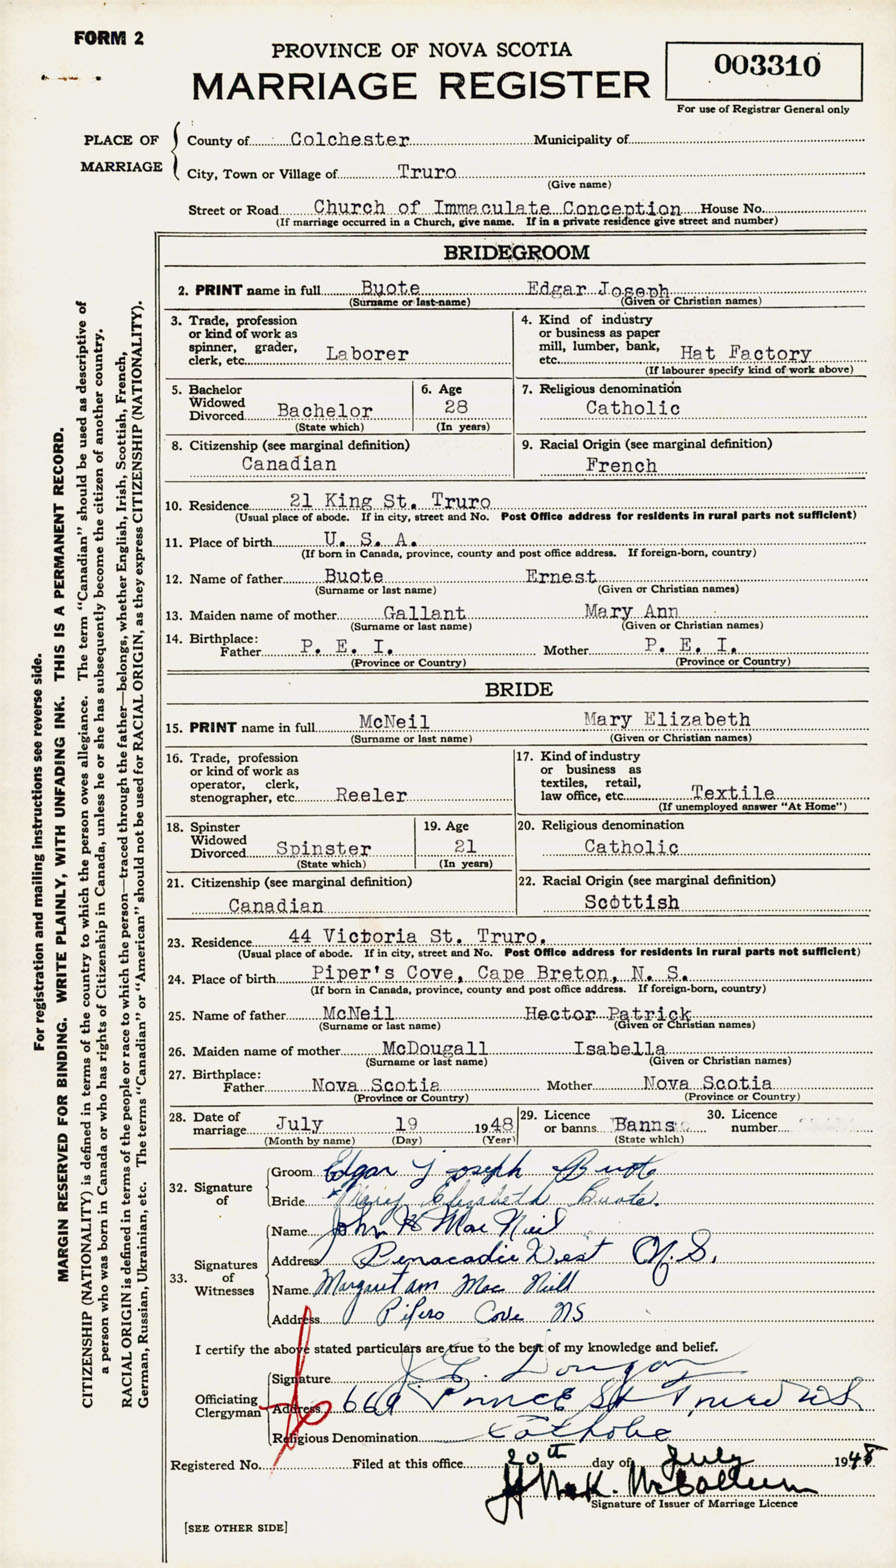 FORM 2
PROVINCE OF NOVA SCOTIA
MARRIAGE REGISTER
003310
For use of Registrar General only
PLACE OF MARRIAGE
County of Colchester Municipality of
City, Town or Village of Truro
(Give name)
Street or Road Church of Immaculate Conception House No.
(If marriage occurred in a Church, give name. If in a private residence give street and number)
BRIDEGROOM
2. PRINT name in full Buote Edgar Joseph
(Surname or last-name) (Given or Christian names)
3. Trade, profession
or kind of work as
spinner, grader,
clerk, etc. Laborer
4. Kind of industry
or business as paper
mill, lumber, bank,
etc. Hat Factory
(If labourer specify kind of work above)
5. Bachelor
Widowed
Divorced Bachelor
(State which)
6. Age
28
(In years)
7. Religious denomination
Catholic
8. Citizenship (see marginal definition)
Canadian
9. Racial Origin (see marginal definition)
French
10. Residence 21 King St. Truro
(Usual place of abode. If in city, street and No. Post Office address for residents in rural parts not sufficient)
11. Place of birth U. S. A.
(If born in Canada, province, county and post office address. If foreign-born, country)
12. Name of father Buote Ernest
(Surname or last name) (Given or Christian names)
13. Maiden name of mother Gallant Mary Ann
(Surname or last name) (Given or Christian names)
14. Birthplace:
Father P. E. I. Mother P. E. I.
(Province or Country) (Province or Country)
BRIDE
15. PRINT name in full McNeil Mary Elizabeth
(Surname or last name) (Given or Christian names)
16. Trade, profession
or kind of work as
operator, clerk,
stenographer, etc. Reeler
17. Kind of industry
or business as
textiles, retail,
law office, etc. Textile
(If unemployed answer "At Home")
18. Spinster
Widowed
Divorced Spinster
(State which)
19. Age
21
(In years)
20. Religious denomination
Catholic
21. Citizenship (see marginal definition)
Canadian
22. Racial Origin (see marginal definition)
Scottish
23. Residence 44 Victoria St. Truro.
(Usual place of abode. If in city, street and No. Post Office address for residents in rural parts not sufficient)
24. Place of birth Piper's Cove, Cape Breton, N. S.
(If born in Canada, province, county and post office address. If foreign-born, country)
25. Name of father McNeil Hector Patrick
(Surname or last name) (Given or Christian names)
26. Maiden name of mother McDougall Isabella
(Surname or last name) (Given or Christian names)
27. Birthplace:
Father Nova Scotia Mother Nova Scotia
(Province or Country) (Province or Country)
28. Date of
marriage July 19 1948
(Month by name) (Day) (Year)
29. Licence
or banns Banns
(State which)
30. Licence
number
32. Signature of
Groom Edgar Joseph Buote
Bride Mary Elizabeth Buote.
33. Signatures of Witnesses
Name John H Mac Neil
Address Benacadie West N.S.
Name Margaret ann Mac Neill
Address Pipers Cove NS
I certify the above stated particulars are true to the best of my knowledge and belief.
Officiating Clergyman
Signature
Address 669 Prince St Truro NS
Religious Denomination Catholic
Registered No. Filed at this office 20th day of July 1948
Signature of Issuer of Marriage Licence
[SEE OTHER SIDE]
For registration and mailing instructions see reverse side.
MARGIN RESERVED FOR BINDING. WRITE PLAINLY, WITH UNFADING INK. THIS IS A PERMANENT RECORD.
CITIZENSHIP (NATIONALITY) is defined in terms of the country to which the person owes allegiance. The term "Canadian" should be used as descriptive of
a person who was born in Canada or who has rights of Citizenship in Canada, unless he or she has subsequently become the citizen of another country.
RACIAL ORIGIN is defined in terms of the people or race to which the person—traced through the father—belongs, whether English, Irish, Scottish, French,
German, Russian, Ukrainian, etc. The terms "Canadian" or "American" should not be used for RACIAL ORIGIN, as they express CITIZENSHIP (NATIONALITY).